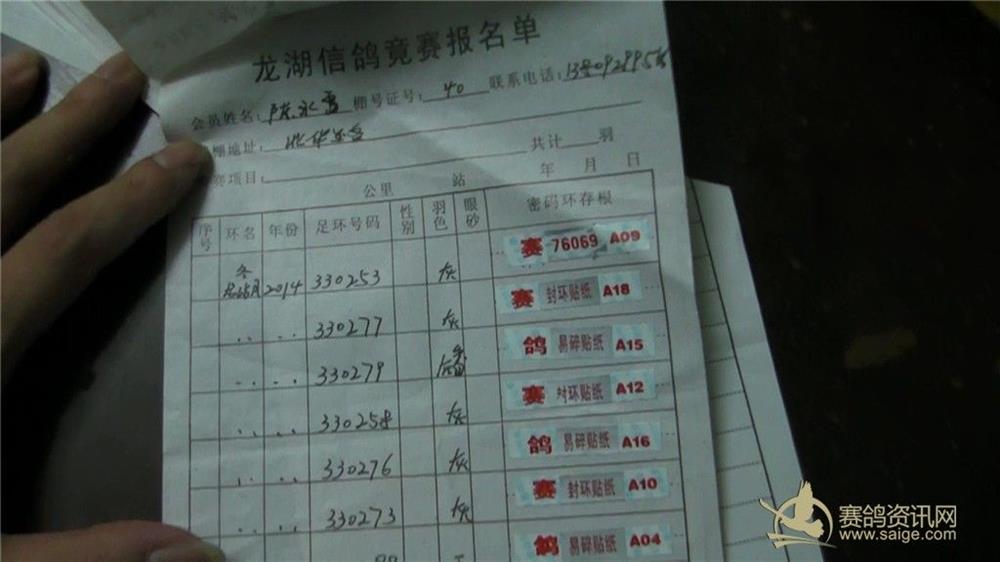 龙湖信鸽竞赛报名单
会员姓名: 陈永雷 棚号证号: 40 联系电话:
棚地址:
赛项目: 共计 羽
公里 站 年 月 日
序号 环名 年份 足环号码 性别 羽色 眼砂 密码环存根
2014 330253 灰 赛 76069 A09
.. .. 330277 灰 赛 封环贴纸 A18
.. .. 330279 鸽 易碎贴纸 A15
.. .. 330258 灰 赛 封环贴纸 A12
.. .. 330276 灰 鸽 易碎贴纸 A16
.. .. 330273 灰 赛 封环贴纸 A10
鸽 易碎贴纸 A04
赛鸽资讯网
www.saige.com